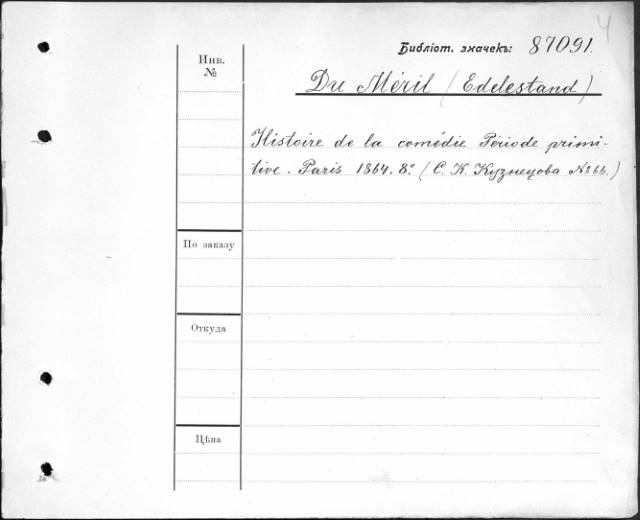 4
Библіот. значекъ: 87091.
Инв.
№
Du Méril (Edelestand)
Histoire de la comédie Période primi-
tive. Paris 1864. 8º. (С. К. Кузнецова № 66.)
По заказу
Откуда
Цѣна